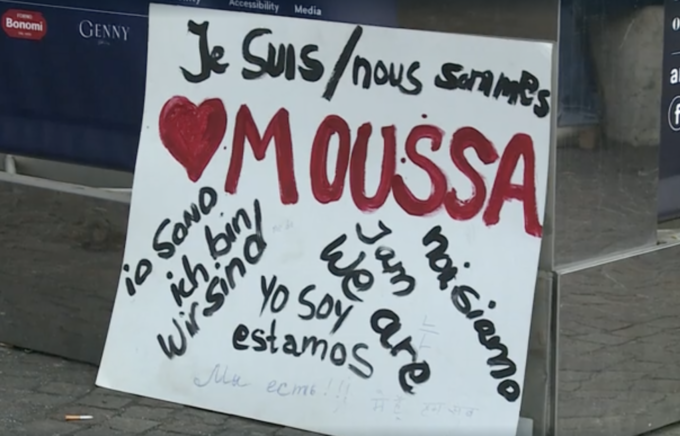 Accessibility Media
Bonomi
GENNY
Je Suis/nous sommes
MOUSSA
io Sono
ich bin/
wir sind
Yo soy
estamos
I am
We are
noi siamo
Мы есть!!!
मैं हूँ हम सब